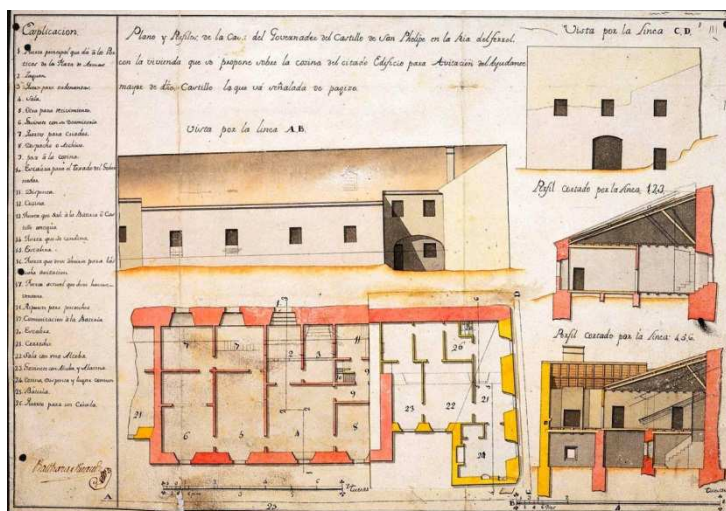 Explicacion.
1. Puerta principal que dá à los Por
ticos de la Plaza de Armas
2. Zaguan
3. Pieza para ordenanzas
4. Sala
5. Otra para recivimiento
6. Gavinete con su Dormitorio
7. Piezas para Criados
8. Despacho o Archivo
9. paso à la cocina
10. Escalera para el
11. Despensa
12. Cocina
13. Puerta que dá à la Bateria ò Cas
tillo antiguo
14. Pieza que se condena
15. Escalera
16. Puerta que se ha de abrir para
17. Pieza actual que
18.
19. Comunicacion à la Bateria
20. Escalera
21. Corredor
22. Sala con una Alcoba
23. Gavinete con Alcoba y Alacena
24. Cocina, Despensa y lugar comun
25. Bascula
26. Quarto para un Criado
A
Plano y Perfiles de la Casa del Governador del Castillo de San Phelipe en la Ria del ferrol.
con la vivienda que se propone sobre la cozina del citado Edificio para Avitacion del Ayudante
mayor de dho. Castillo la que vá señalada de pagizo.
Vista por la linea A.B.
Vista por la linea C.D.
Perfil cortado por la linea 1.2.3.
Perfil cortado por la linea 4.5.6.
7 7 2 3 11
26
9
9
21 6 5 4 8 23 22 21
24
Tuesas